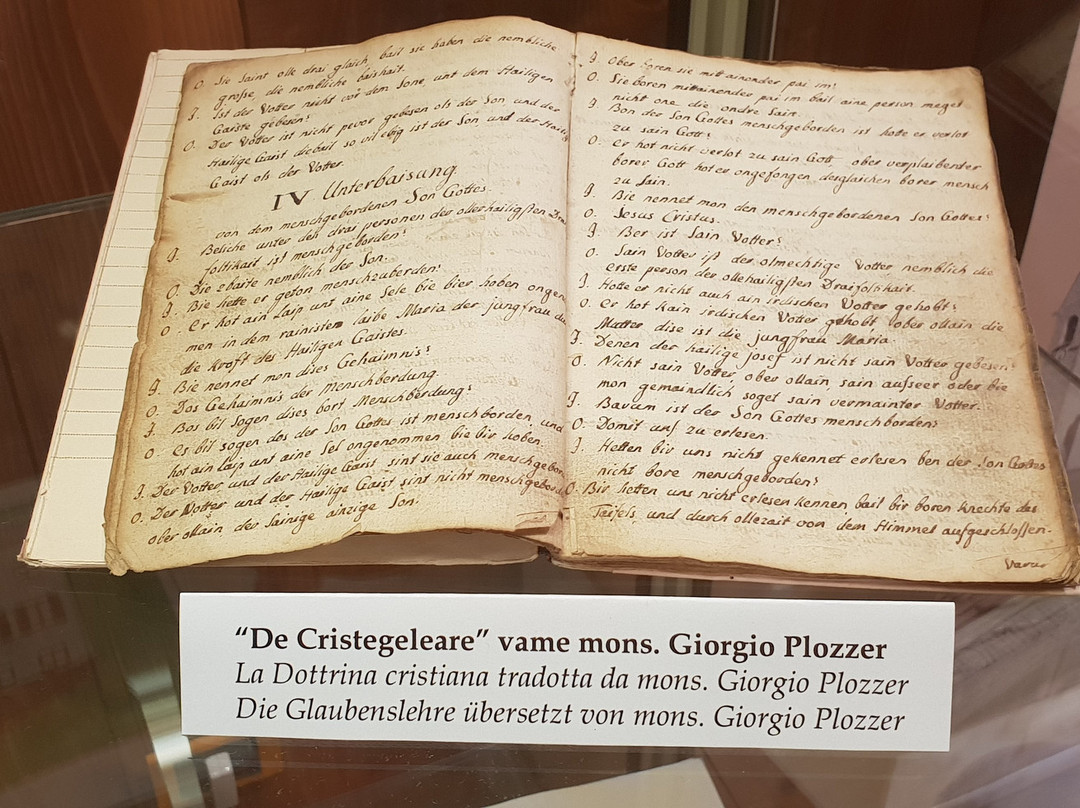 O. Sie saint olle drai gleich, bail sie haben die nembliche
große die nembliche baishait.
J. Ist der Votter nicht vor dem Sone, unt dem Hailigen
Gaiste gebesen?
O. Der Votter ist nicht pevor gebesen ols der Son, und der
Hailige Gaist diebail so vil ebig ist der Son, und der Hailig
Gaist ols der Votter.
IV Unterbaisung.
von dem menschgebordenen Son Gottes.
J. Beliche unter den drai personen der ollerhailigsten Drai
foltikait ist menschgeborden?
O. Die zbaite nemblich der Son.
J. Bie hotte er geton menschzuberden?
O. Er hot ain laip unt aine Sele bie bier hoben ongen
men in dem rainisten laibe Maria der jungfrau du
die krofft des Hailigen Gaistes.
J. Bie nennet man dises Gehaimnis?
O. Das Gehaimnis der Menschberdung.
J. Bos bil Sogen dises bort Menschberdung?
O. Es bil sogen dos der Son Gottes ist menschborden, und
hot ain laip unt aine Sel ongenommen bie bir hoben.
J. Der Votter und der Hailige Gaist sint sie auch menschgebord
O. Der Votter und der Hailige Gaist sint nicht menschgebord
ober ollain der sainige ainzige Son.
J. Ober boren sie mitt ainonder pai im?
O. Sie boren mittainender pai im bail aine person meget
nicht one die ondre Sain.
J. Bon der Son Gottes menschgeborden ist hotte er verlot
zu sain Gott?
O. er hot nicht verlot zu sain Gott, ober verplaibender
borer Gott hot er ongefongen, desglaichen borer mensch
zu Sain.
J. Bie nennet mon den menschgebordenen Son Gottes?
O. Jesus Cristus.
J. Ber ist Sain Votter?
O. Sain Votter ist der olmechtige Votter nemblich die
erste person der ollehailigsten Draifoltikait.
J. Hotte er nicht auch ain irdischen Votter gehobt?
O. er hot kain irdischen Votter gehobt, ober ollain die
Mutter dise ist die jungfrau Maria
J. Denen der hailige Josef ist nicht sain Votter gebesen?
O. Nicht sain Votter, ober ollain sain aufseer oder bie
mon gemaindlich soget sain vermainter Votter.
J. Barum ist der Son Gottes menschborden?
O. Domit uns zu erlesen.
J. Hetten bir uns nicht gekennet erlesen ben der Son Gottes
nicht bore menschgeborden?
O. Bir hetten uns nicht erlesen kennen, bail bir boren knechte des
Teifels, und durch ollezait von dem Himmel aufgeschlossen.
Varur
“De Cristegeleare” vame mons. Giorgio Plozzer
La Dottrina cristiana tradotta da mons. Giorgio Plozzer
Die Glaubenslehre übersetzt von mons. Giorgio Plozzer